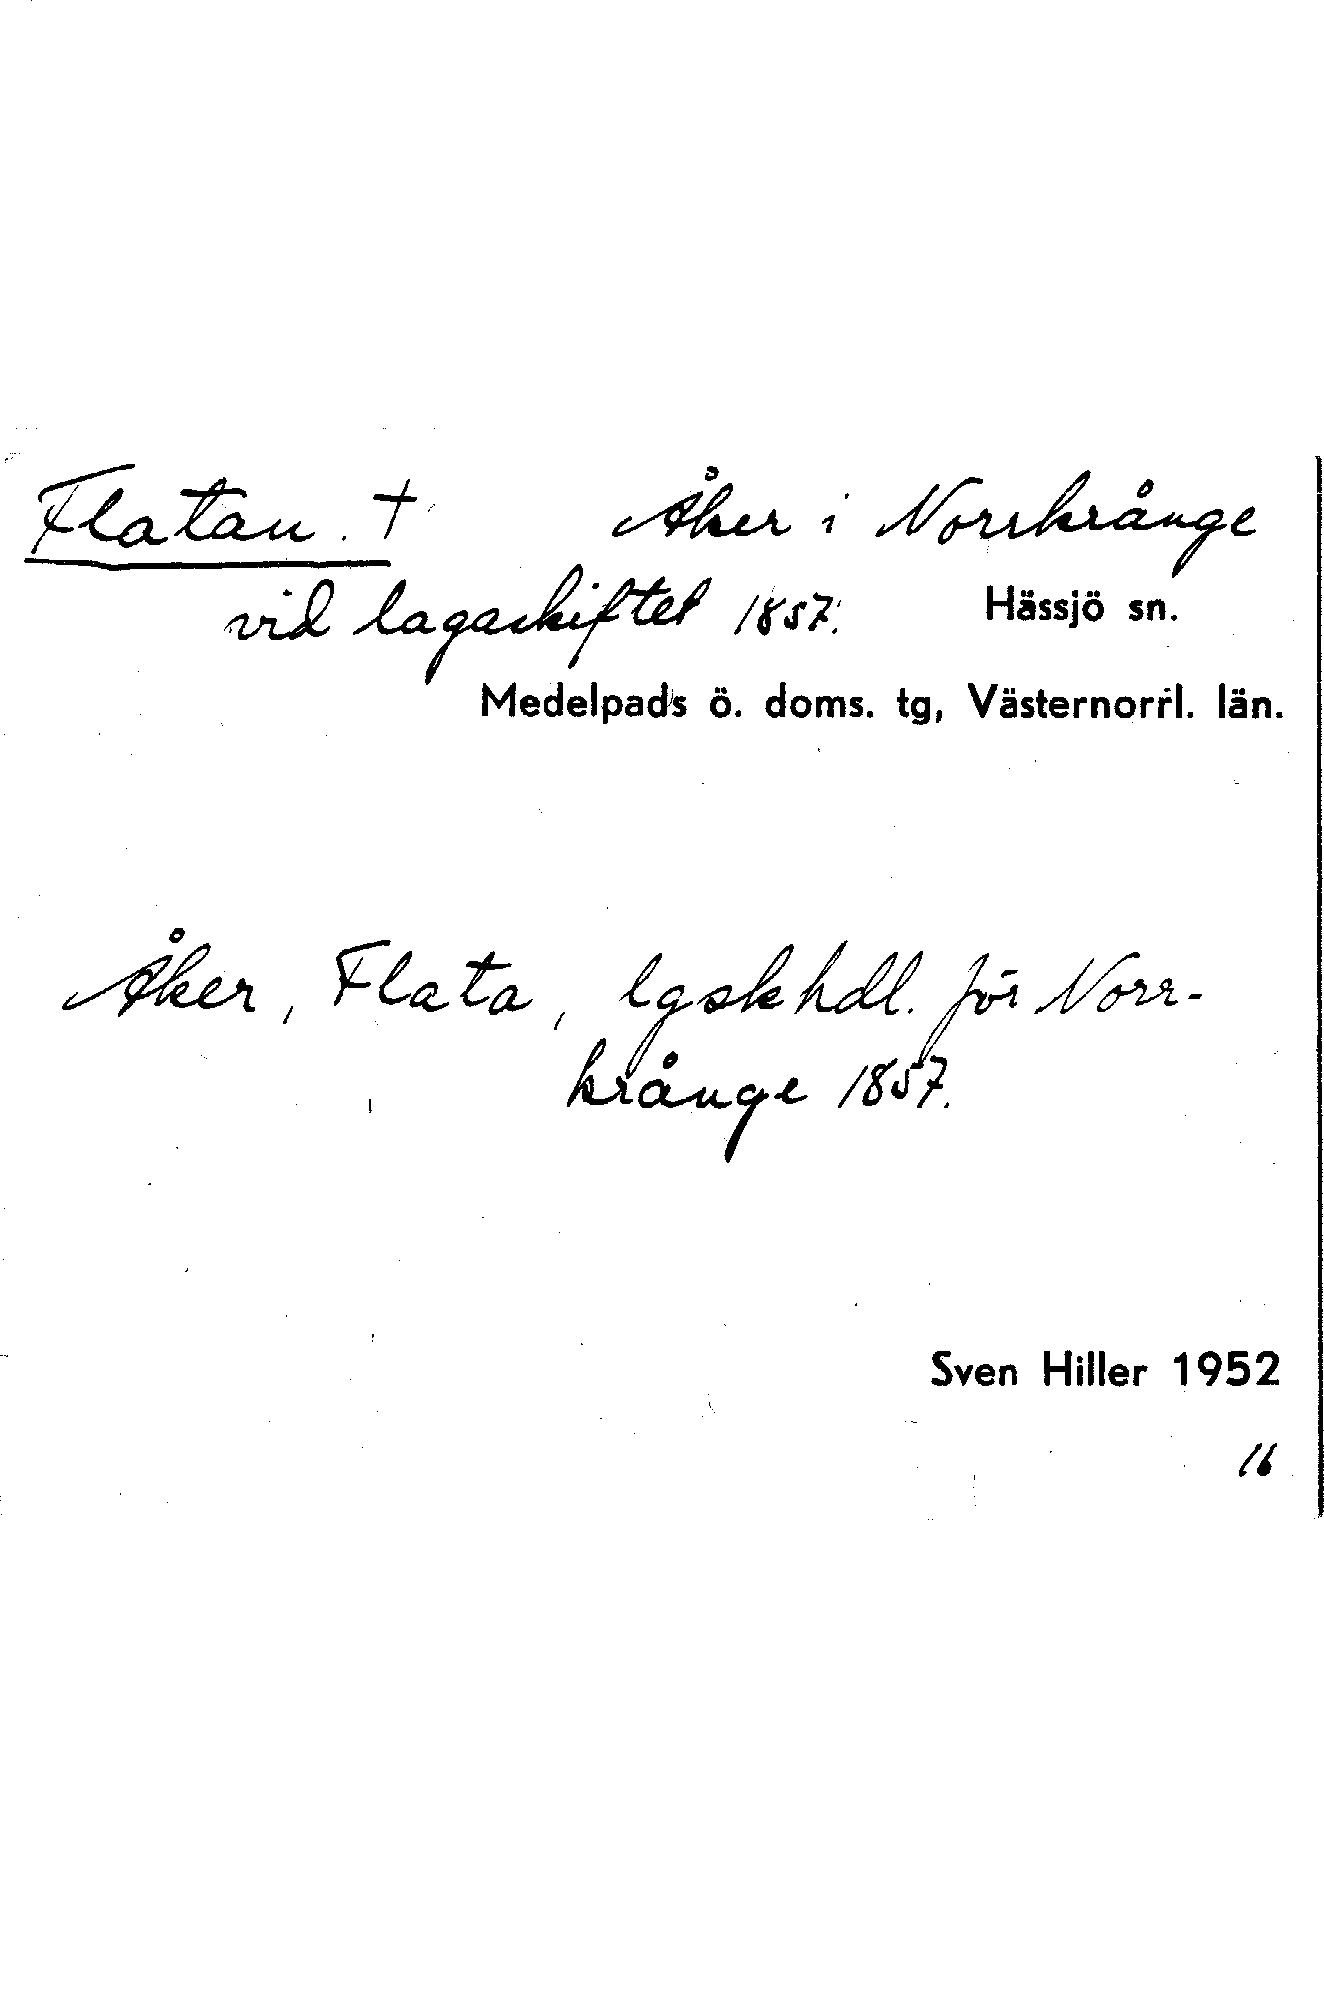 Flatan. † Åker i Norrkrånge
vid lagaskiftet 1857. Hässjö sn.
Medelpads ö. doms. tg, Västernorrl. län.
Åker, Flata, lgsk hdl. för Norr-
krånge 1857.
Sven Hiller 1952
16